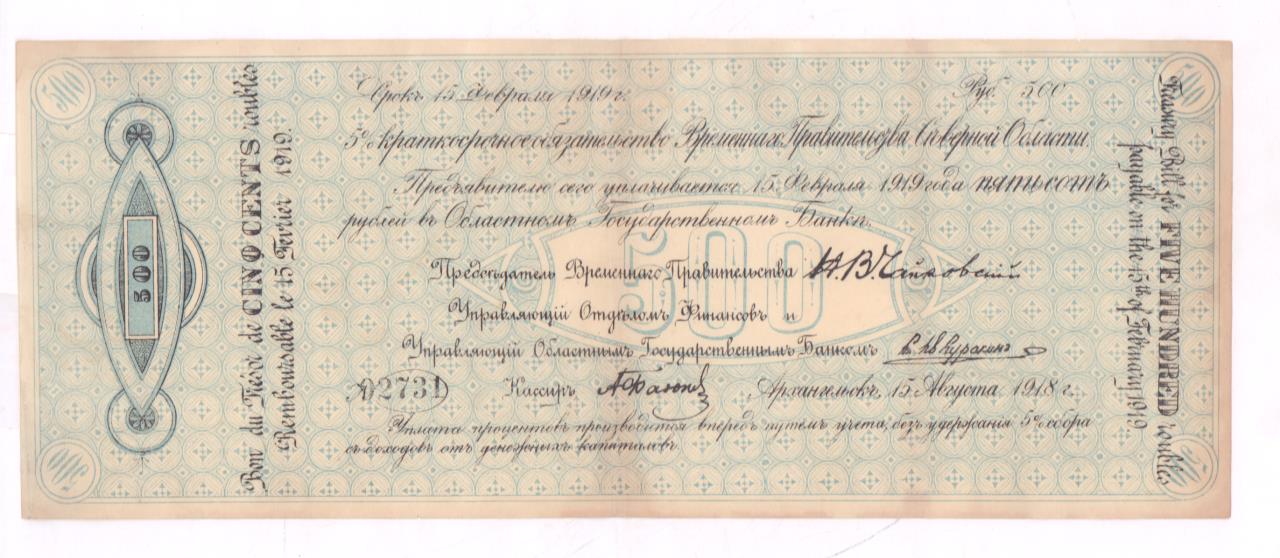 500
500
Bon du Trésor de CINQ CENTS roubles
Remboursable le 15 Fevrier 1919.
Срокъ 15 Февраля 1919 г.
Руб. 500
5% краткосрочное обязательство Временнаго Правительства Съверной Области.
Предъявителю сего уплачивается 15 Февраля 1919 года пятьсотъ
рублей въ Областномъ Государственномъ Банкѣ.
500
Предсѣдатель Временнаго Правительства Н. В. Чайковскій
Управляющій Отдѣломъ Финансовъ и
Управляющій Областнымъ Государственнымъ Банкомъ Куракинъ
А02731
Кассиръ
Архангельскъ, 15 Августа 1918 г.
Уплата процентовъ производится впередъ путемъ учета, безъ удержанія 5% сбора
съ доходовъ отъ денежныхъ капиталовъ.
Treasury Bill for FIVE HUNDRED roubles
payable on the 15th of February 1919
500
500
500